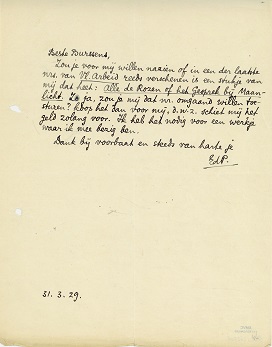 Beste Buurssens,
Zou je voor mij willen nazien of in een der laatste
nrs. van Vl. Arbeid reeds verschenen is een stukje van
mij dat heet: Alle de Rozen of het Gesprek bij Maan-
licht. Zo ja, zou je mij dat nr. omgaand willen toe-
sturen? Koop het dan voor mij, d.w.z. schiet mij het
geld zolang voor. Ik heb het nodig voor een werkje
waar ik mee bezig ben.
Dank bij voorbaat en steeds van harte je
EdP.
31.3.29.